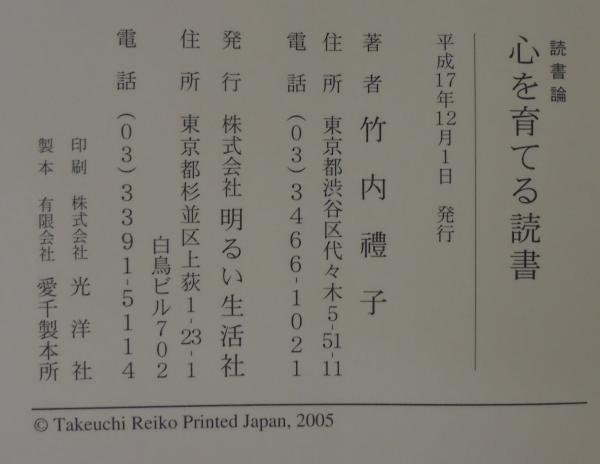 読書論
心を育てる読書
平成17年12月1日 発行
著者 竹内禮子
住所 東京都渋谷区代々木5-51-11
電話 (03)3466-1021
発行 株式会社 明るい生活社
住所 東京都杉並区上荻1-23-1
白鳥ビル702
電話 (03)3391-5114
印刷 株式会社 光洋社
製本 有限会社 愛千製本所
© Takeuchi Reiko Printed Japan, 2005